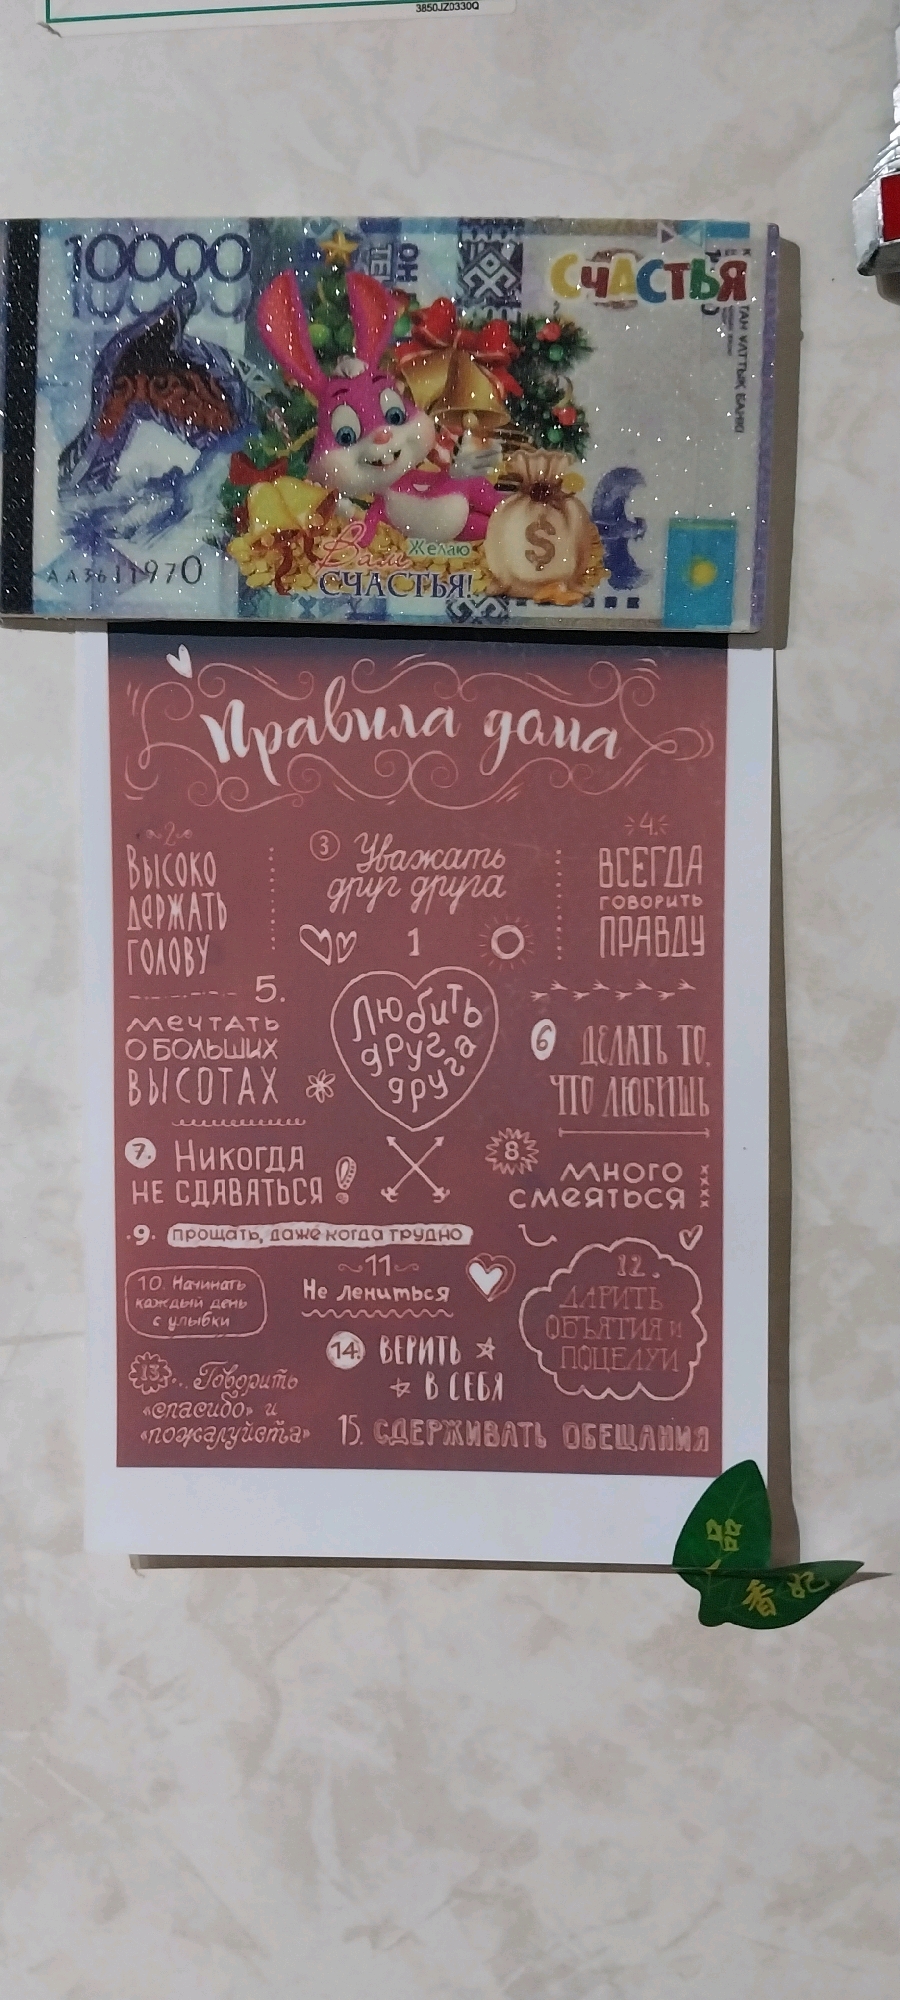 3850JZ0330Q
10000
СЧАСТЬЯ
AA3611970
Вам Желаю
СЧАСТЬЯ!
Правила дома
2
ВЫСОКО
ДЕРЖАТЬ
ГОЛОВУ
3 Уважать
друг друга
4.
ВСЕГДА
ГОВОРИТЬ
ПРАВДУ
1
Любить
друг
друга
5.
МЕЧТАТЬ
О БОЛЬШИХ
ВЫСОТАХ
6 ДЕЛАТЬ ТО,
ЧТО ЛЮБИШЬ
7. НИКОГДА
НЕ СДАВАТЬСЯ!
8. МНОГО
СМЕЯТЬСЯ
9. прощать, даже когда трудно
10. Начинать
каждый день
с улыбки
11
Не лениться
12.
ДАРИТЬ
ОБЪЯТИЯ И
ПОЦЕЛУИ
13. Говорить
«спасибо» и
«пожалуйста»
14. ВЕРИТЬ
В СЕБЯ
15. СДЕРЖИВАТЬ ОБЕЩАНИЯ
一品
香妃